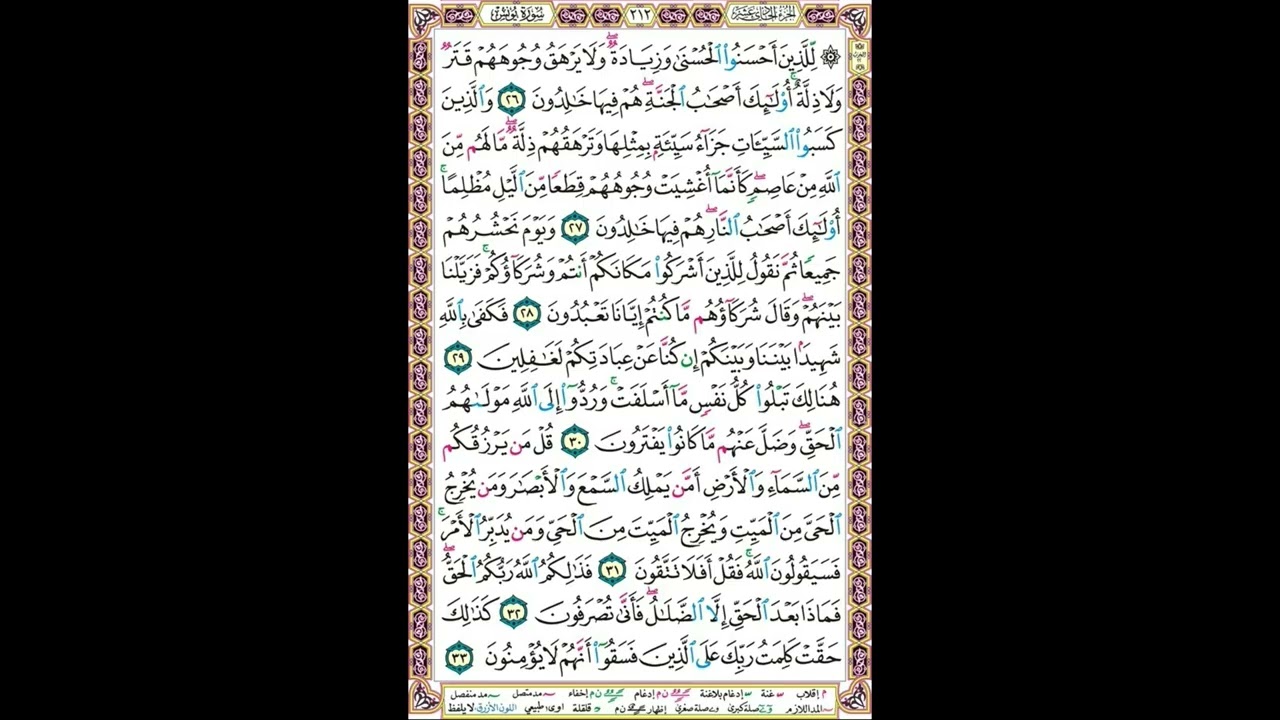 الجزء الحادي عشر ٢١٢ سورة يونس
۞ لِّلَّذِينَ أَحْسَنُوا۟ ٱلْحُسْنَىٰ وَزِيَادَةٌۖ وَلَا يَرْهَقُ وُجُوهَهُمْ قَتَرٌ
وَلَا ذِلَّةٌۚ أُو۟لَٰٓئِكَ أَصْحَٰبُ ٱلْجَنَّةِۖ هُمْ فِيهَا خَٰلِدُونَ ٢٦ وَٱلَّذِينَ
كَسَبُوا۟ ٱلسَّيِّـَٔاتِ جَزَآءُ سَيِّئَةٍۭ بِمِثْلِهَا وَتَرْهَقُهُمْ ذِلَّةٌۖ مَّا لَهُم مِّنَ
ٱللَّهِ مِنْ عَاصِمٍۖ كَأَنَّمَآ أُغْشِيَتْ وُجُوهُهُمْ قِطَعًا مِّنَ ٱلَّيْلِ مُظْلِمًاۚ
أُو۟لَٰٓئِكَ أَصْحَٰبُ ٱلنَّارِۖ هُمْ فِيهَا خَٰلِدُونَ ٢٧ وَيَوْمَ نَحْشُرُهُمْ
جَمِيعًا ثُمَّ نَقُولُ لِلَّذِينَ أَشْرَكُوا۟ مَكَانَكُمْ أَنتُمْ وَشُرَكَآؤُكُمْۚ فَزَيَّلْنَا
بَيْنَهُمْۖ وَقَالَ شُرَكَآؤُهُم مَّا كُنتُمْ إِيَّانَا تَعْبُدُونَ ٢٨ فَكَفَىٰ بِٱللَّهِ
شَهِيدًۢا بَيْنَنَا وَبَيْنَكُمْ إِن كُنَّا عَنْ عِبَادَتِكُمْ لَغَٰفِلِينَ ٢٩
هُنَالِكَ تَبْلُوا۟ كُلُّ نَفْسٍ مَّآ أَسْلَفَتْۚ وَرُدُّوٓا۟ إِلَى ٱللَّهِ مَوْلَىٰهُمُ
ٱلْحَقِّۖ وَضَلَّ عَنْهُم مَّا كَانُوا۟ يَفْتَرُونَ ٣٠ قُلْ مَن يَرْزُقُكُم
مِّنَ ٱلسَّمَآءِ وَٱلْأَرْضِ أَمَّن يَمْلِكُ ٱلسَّمْعَ وَٱلْأَبْصَٰرَ وَمَن يُخْرِجُ
ٱلْحَىَّ مِنَ ٱلْمَيِّتِ وَيُخْرِجُ ٱلْمَيِّتَ مِنَ ٱلْحَىِّ وَمَن يُدَبِّرُ ٱلْأَمْرَۚ
فَسَيَقُولُونَ ٱللَّهُۚ فَقُلْ أَفَلَا تَتَّقُونَ ٣١ فَذَٰلِكُمُ ٱللَّهُ رَبُّكُمُ ٱلْحَقُّۖ
فَمَاذَا بَعْدَ ٱلْحَقِّ إِلَّا ٱلضَّلَٰلُۖ فَأَنَّىٰ تُصْرَفُونَ ٣٢ كَذَٰلِكَ
حَقَّتْ كَلِمَتُ رَبِّكَ عَلَى ٱلَّذِينَ فَسَقُوٓا۟ أَنَّهُمْ لَا يُؤْمِنُونَ ٣٣
م إقلاب غنة إدغام بلاغنة ن م إدغام ن م إخفاء مد متصل مد منفصل
المد اللازم صلة كبرى صلة صغرى إظهار ن م قلقلة اوى: طبيعي اللون الأزرق: لا يلفظ